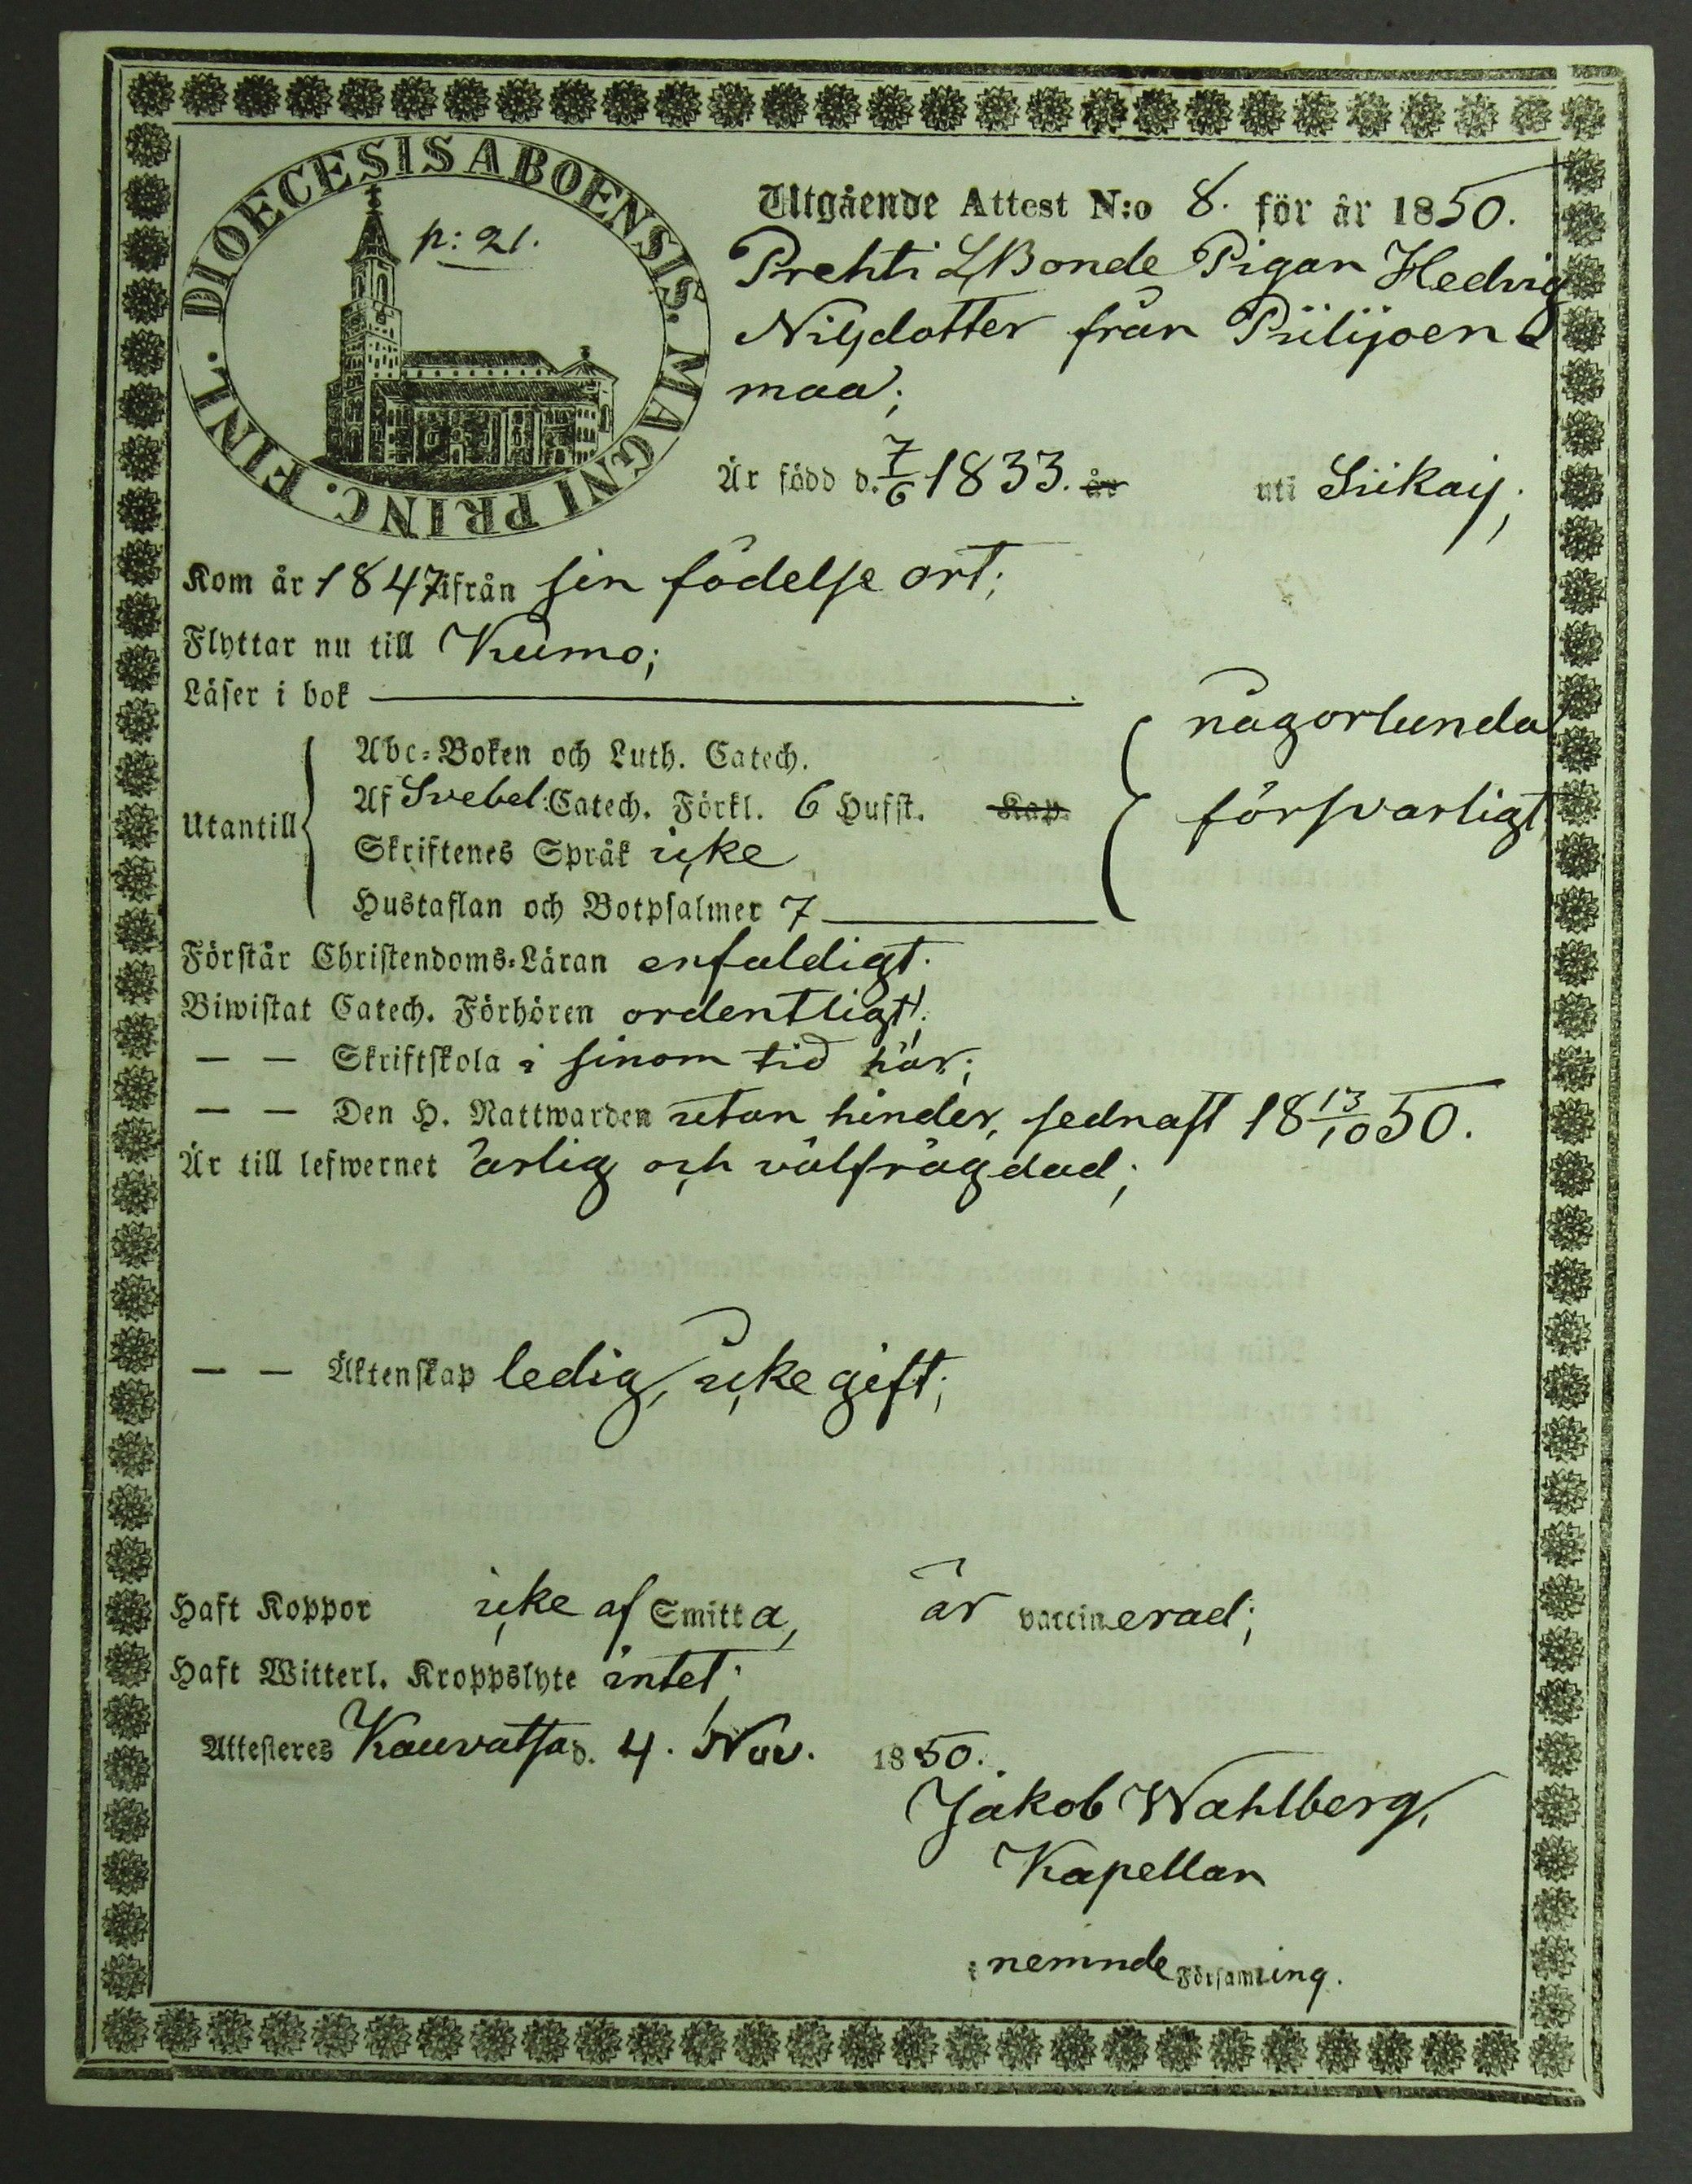 DIOECESIS ABOENSIS. MAGNI PRINC. FINL.
p: 21.
Utgående Attest N:o 8. för år 1850.
Prehti LBonde Pigan Hedvig
Nilsdotter från Piilijoen
maa;
Är född d. 7/6 1833. år uti Siikais;
Kom år 1847 ifrån sin födelse ort;
Flyttar nu till Kumo;
Läser i bok någorlunda
Utantill
Abc=Boken och Luth. Catech.
Af Svebel: Catech. Förkl. 6 Hufst. Kap. försvarligt
Skriftenes Språk icke
Hustaflan och Botpsalmer 7
Förstår Christendoms=Läran enfaldigt.
Biwistat Catech. Förhören ordentligt;
— — Skriftskola i sinom tid här;
— — Den H. Nattwarden utan hinder, sednast 18 13/10 50.
Är till lefwernet ärlig och välfrägdad;
— — Äktenskap ledig, icke gift;
Haft Koppor icke af Smitta, är vaccinerad;
Haft Witterl. Kroppslyte intet;
Attesteres Kauvatsa d. 4. Nov. 1850.
Jakob Wahlberg,
Kapellan
i nemnde Församling.